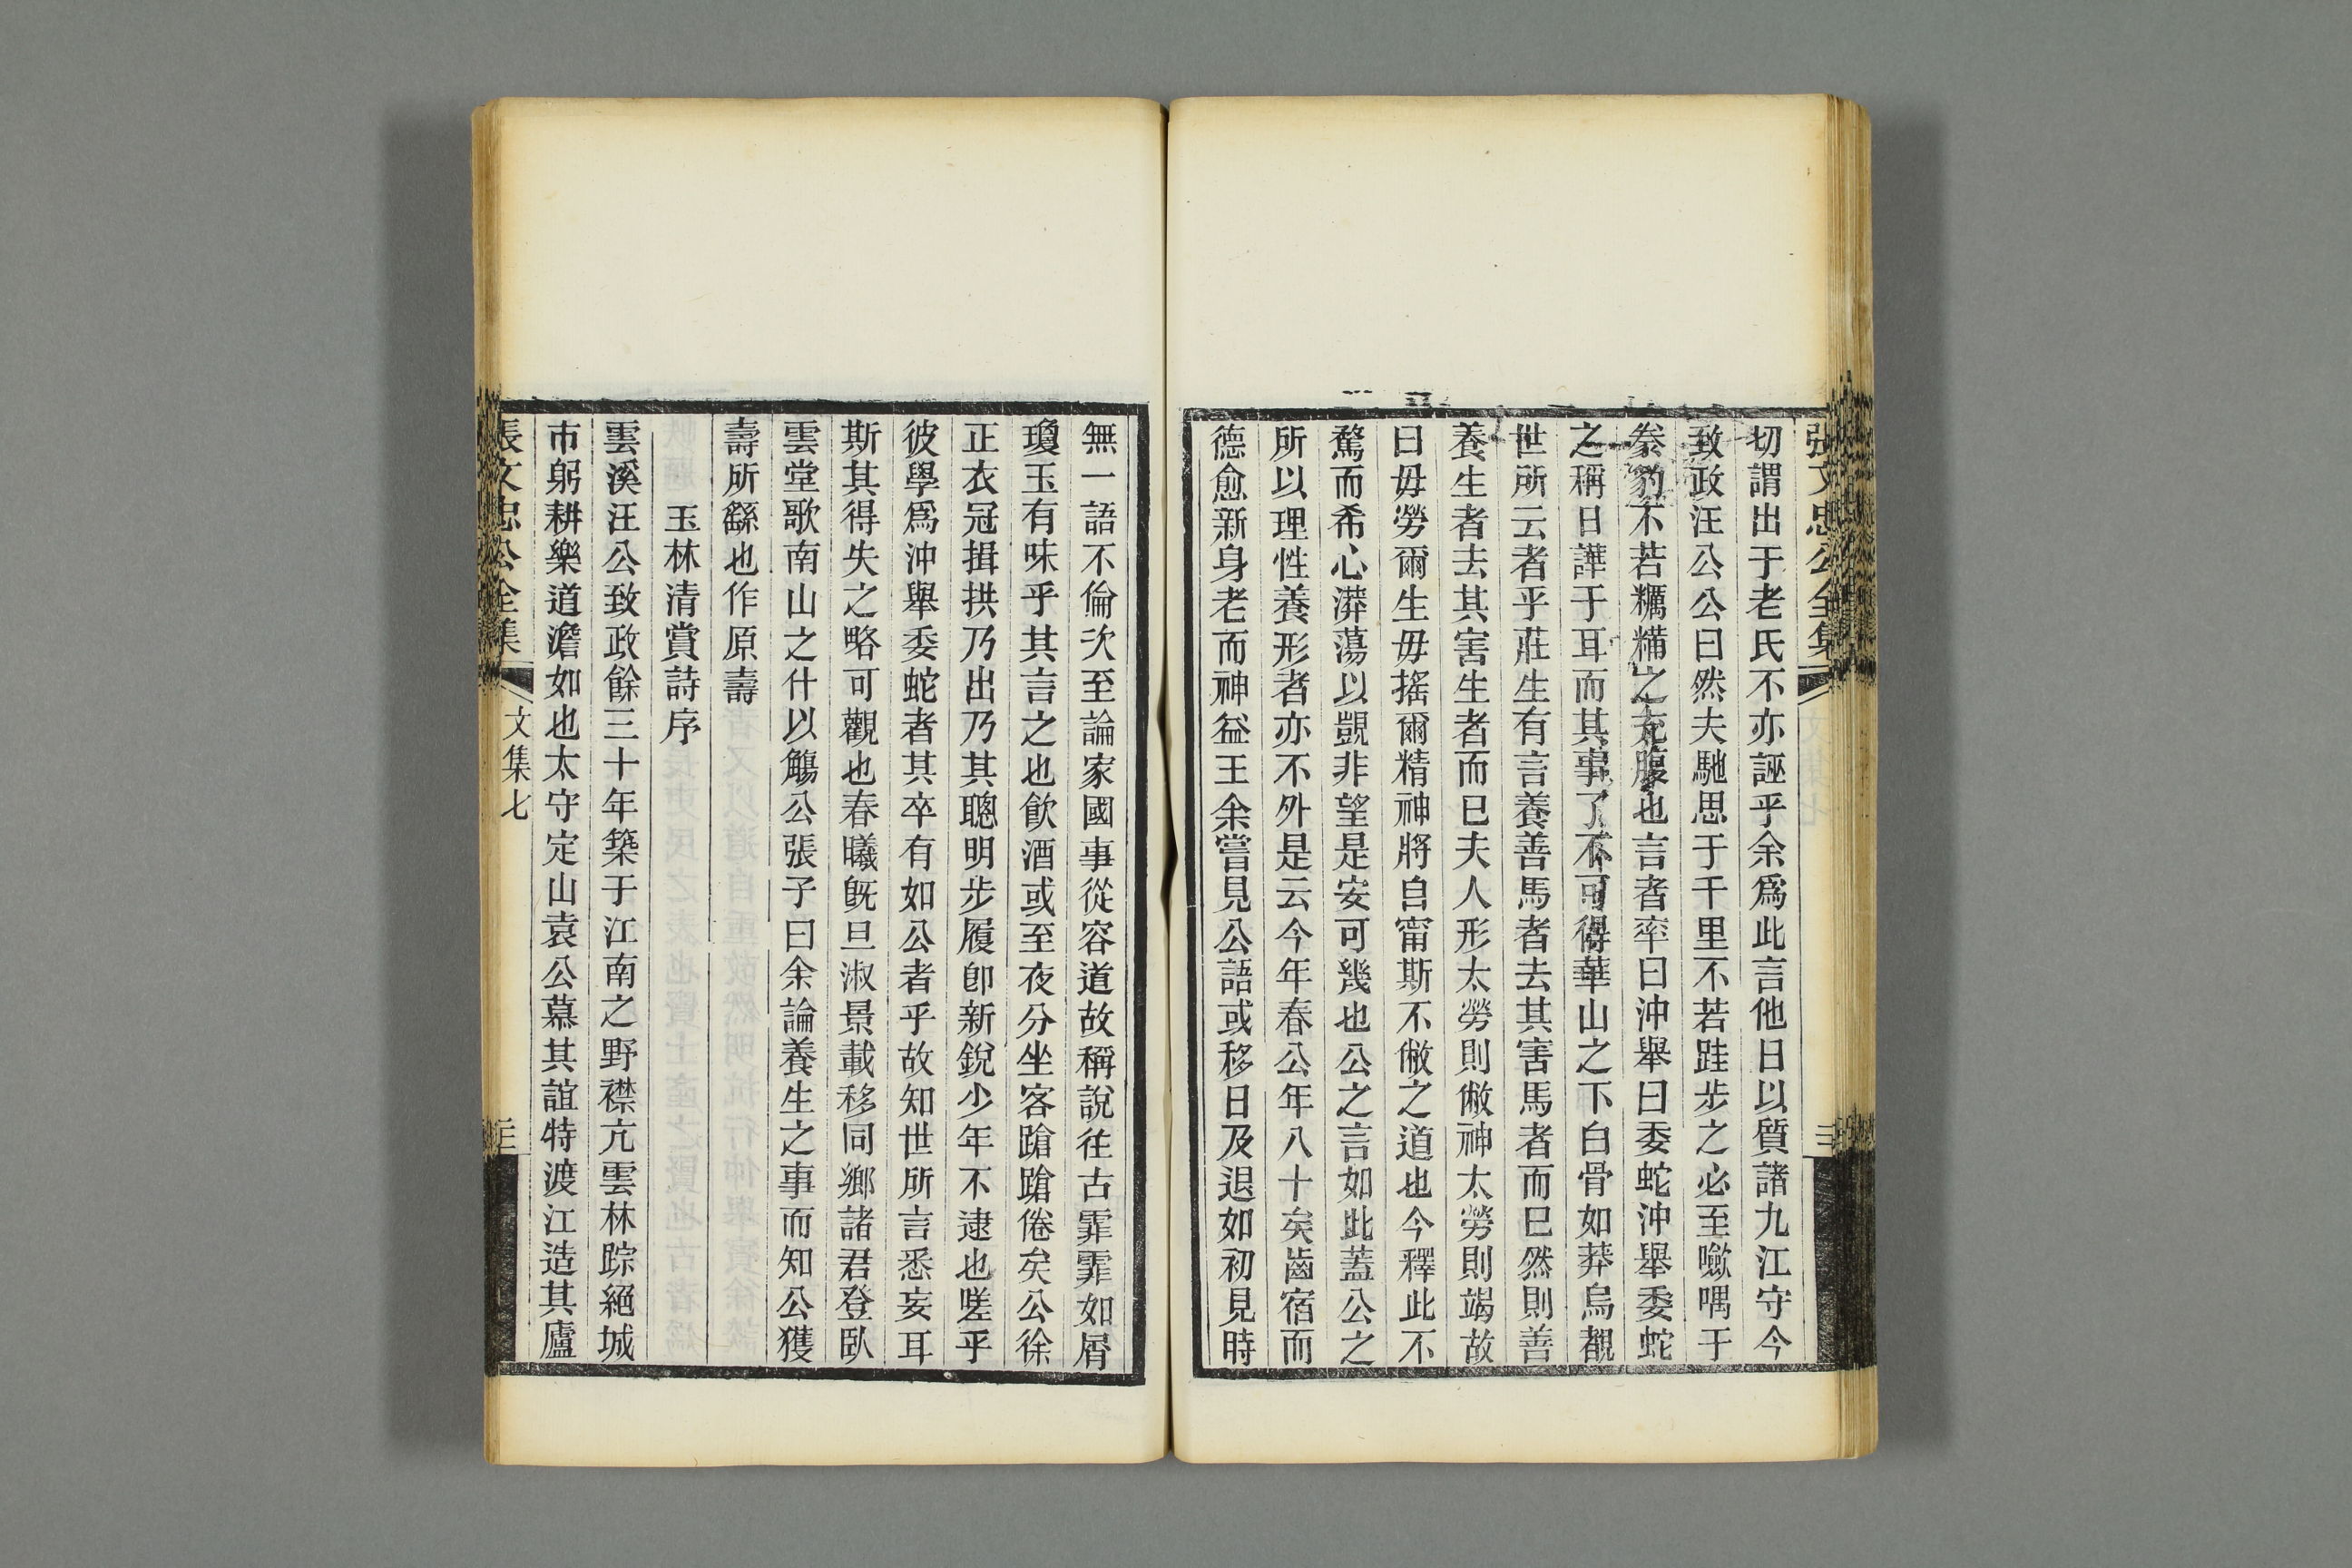 張文忠公全集
三
切謂出于老氏不亦誣乎余爲此言他日以質諸九江守今
致政汪公公曰然夫馳思于千里不若跬步之必至噷喁于
豢豹不若糲糒之充腹也言者率曰沖舉曰委蛇沖舉委蛇
之稱日譁于耳而其事了不可得華山之下白骨如莽烏覩
世所云者乎莊生有言養善馬者去其害馬者而已然則善
養生者去其害生者而已夫人形太勞則敝神太勞則竭故
曰毋勞爾生毋搖爾精神將自甯斯不敝之道也今釋此不
騖而希心漭蕩以覬非望是安可幾也公之言如此蓋公之
所以理性養形者亦不外是云今年春公年八十矣齒宿而
德愈新身老而神益王余嘗見公語或移日及退如初見時
無一語不倫次至論家國事從容道故稱說往古霏霏如屑
瓊玉有味乎其言之也飮酒或至夜分坐客蹌蹌倦矣公徐
正衣冠揖拱乃出乃其聰明步履卽新銳少年不逮也嗟乎
彼學爲沖舉委蛇者其卒有如公者乎故知世所言悉妄耳
斯其得失之略可觀也春曦旣旦淑景載移同鄉諸君登臥
雲堂歌南山之什以觴公張子曰余論養生之事而知公獲
壽所繇也作原壽
玉林清賞詩序
雲溪汪公致政餘三十年築于江南之野襟亢雲林踪絕城
市躬耕樂道澹如也太守定山袁公慕其誼特渡江造其廬
張文忠公全集
文集七